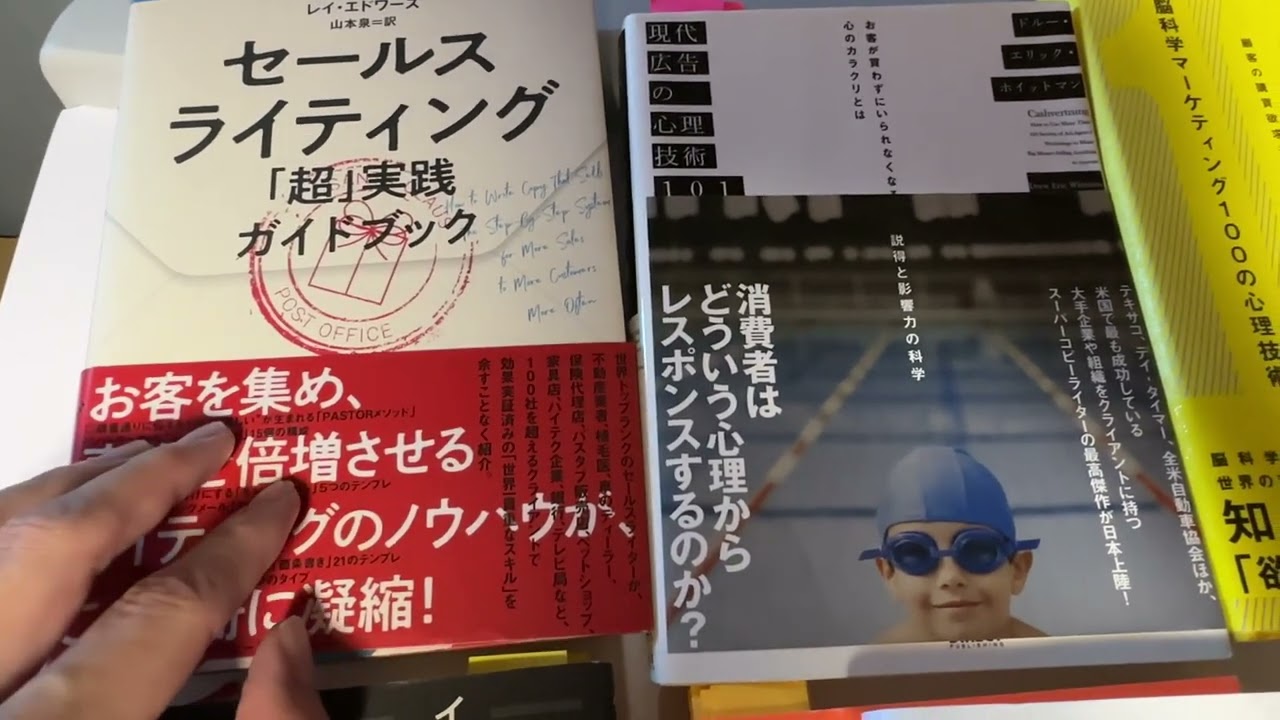 レイ・エドワーズ
山本泉=訳
セールス
ライティング
「超」実践
ガイドブック
How to Write Copy That Sells
Step-By-Step System
for More Sales
to More Customers
More Often
POST OFFICE
お客を集め、
倍増させる
グのノウハウが、
に凝縮!
が生まれる「PASTORメソッド」
15個の構成
5つのテンプレ
箇条書き」21のテンプレ
のタイプ
世界トップランクのセールスライターが、
不動産業者、植毛医、
保険代理店、パスタ
ペットショップ、
家具店、ハイテク企業、
テレビ局など、
100社を超えるクライアントで
効果実証済みの「世界一
なスキル」を
余すことなく紹介。
現代
広告
の
心理
技術
101
お客が買わずにいられなくなる
心のカラクリとは
ドルー・
エリック・
ホイットマン
Cashvertising
Drew Eric Whitman
説得と影響力の科学
消費者は
どういう心理から
レスポンスするのか?
テキサコ、デイ・タイマー、全米自動車協会ほか、
米国で最も成功している
大手企業や組織をクライアントに持つ
スーパーコピーライターの最高傑作が日本上陸!
PUBLISHING
顧客の購買欲求
脳科学マーケティング100の心理技術
脳科学
世界の
知
「欲
イ